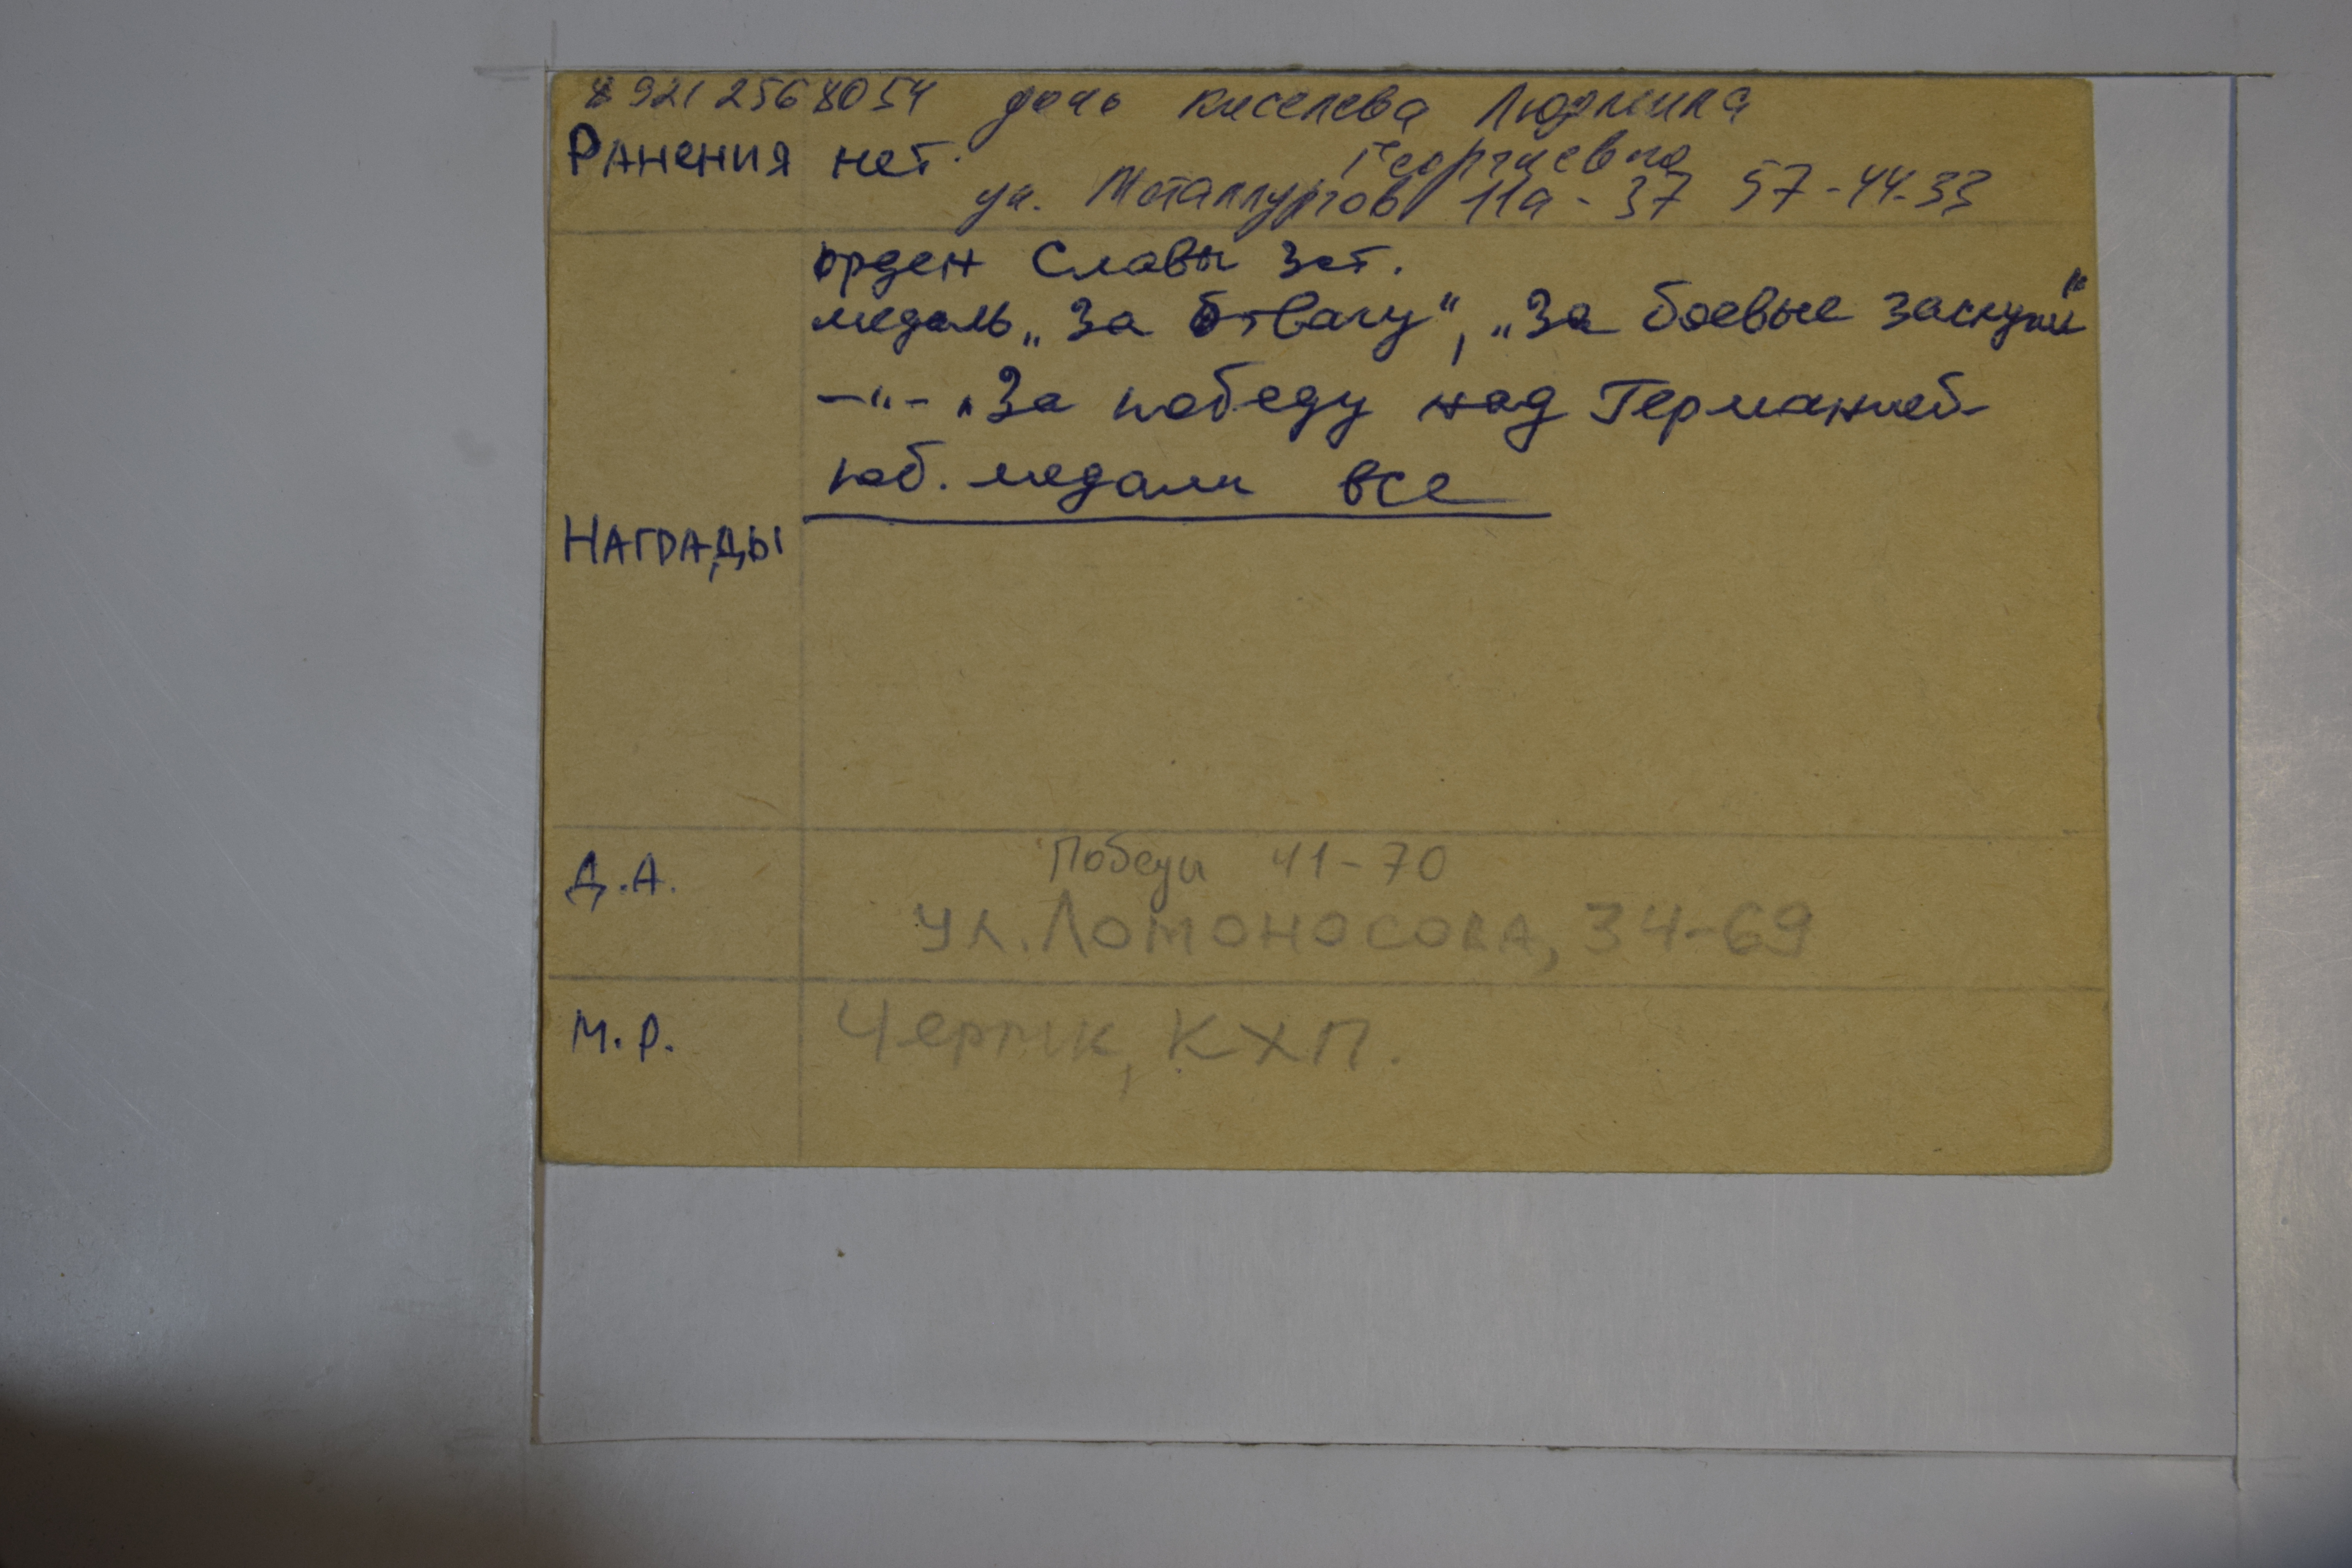 89212568054 дочь Киселева Людмила
Георгиевна
Ранения нет.
ул. Металлургов 11а - 37 57-44-33
орден Славы 3 ст.
медаль „За Отвагу“, „За боевые заслуги“
-"- „За победу над Германией
юб. медали все
Награды
Победы 41-70
Д.А.
ул. Ломоносова, 34-69
М.Р. ЧерМК, КХП.